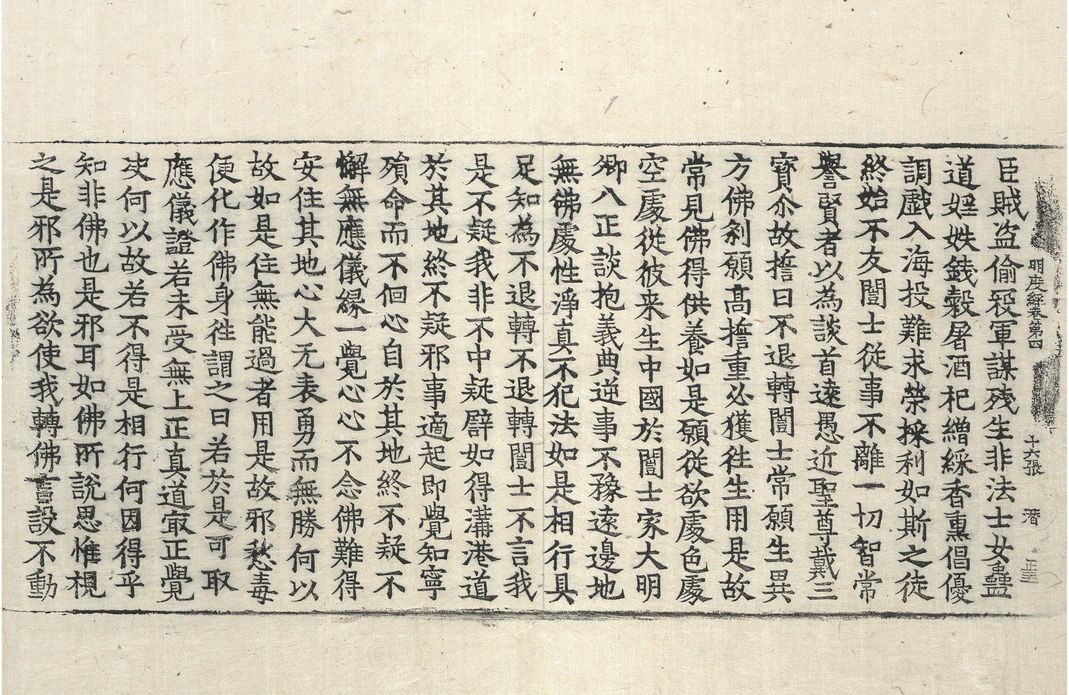 明度經卷第四　十六張　潛　正
臣賊盜偷殺軍謀残生非法士女蠱
道婬妷錢穀屠酒杷繒綵香熏倡優
調戲入海投難求榮採利如斯之徒
終始不友闓士從事不離一切智常
譽賢者以為談首遠愚近聖尊戴三
寶尒故擔曰不退轉闓士常願生異
方佛刹願高擔重必獲往生用是故
常見佛得供養如是願從欲處色處
空處從彼来生中國於闓士家大明
卿八正談抱義典逆事不豫遠邊地
無佛處性淨真不犯法如是相行具
足知為不退轉不退轉闓士不言我
是不疑我非不中疑辟如得溝港道
於其地終不疑邪事適起即覺知寧
殞命而不佪心自於其地終不疑不
懈無應儀緣一覺心心不念佛難得
安住其地心大无表勇而無勝何以
故如是住無能過者用是故邪愁毒
便化作佛身往謂之曰若於是可取
應儀證若未受無上正真道㝡正覺
决何以故若不得是相行何因得乎
知非佛也是邪耳如佛所說思惟視
之是邪所為欲使我轉佛言設不動